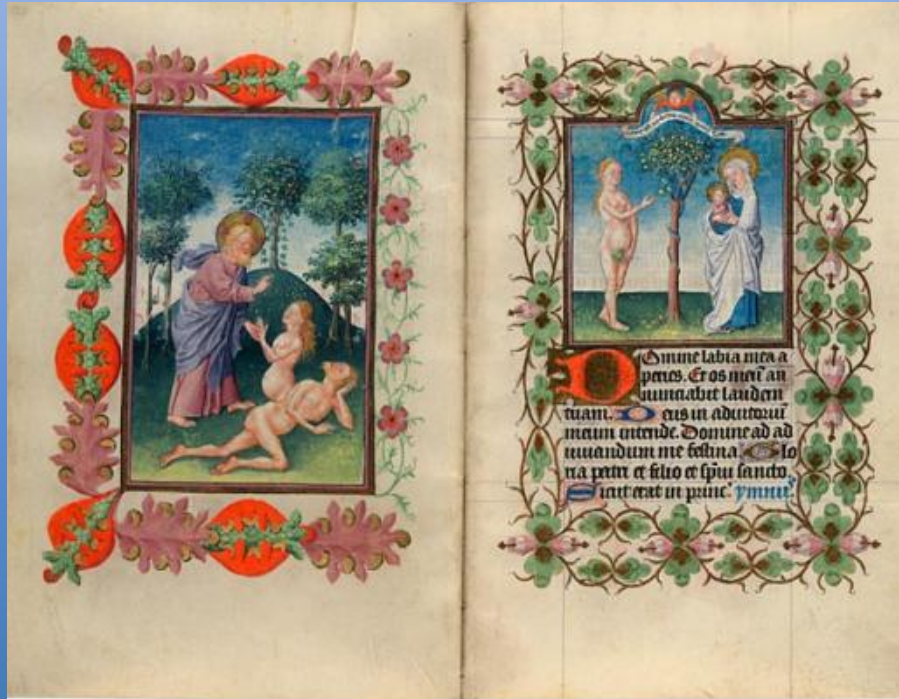 Domine labia mea a
peries. Et os meū an
nunciabit laudem
tuam. Deus in adiutoriū
meum intende. Domine ad ad
iuvandum me festina. Glo
ria patri et filio et spūi sancto.
Sicut erat in princ. ymnus.